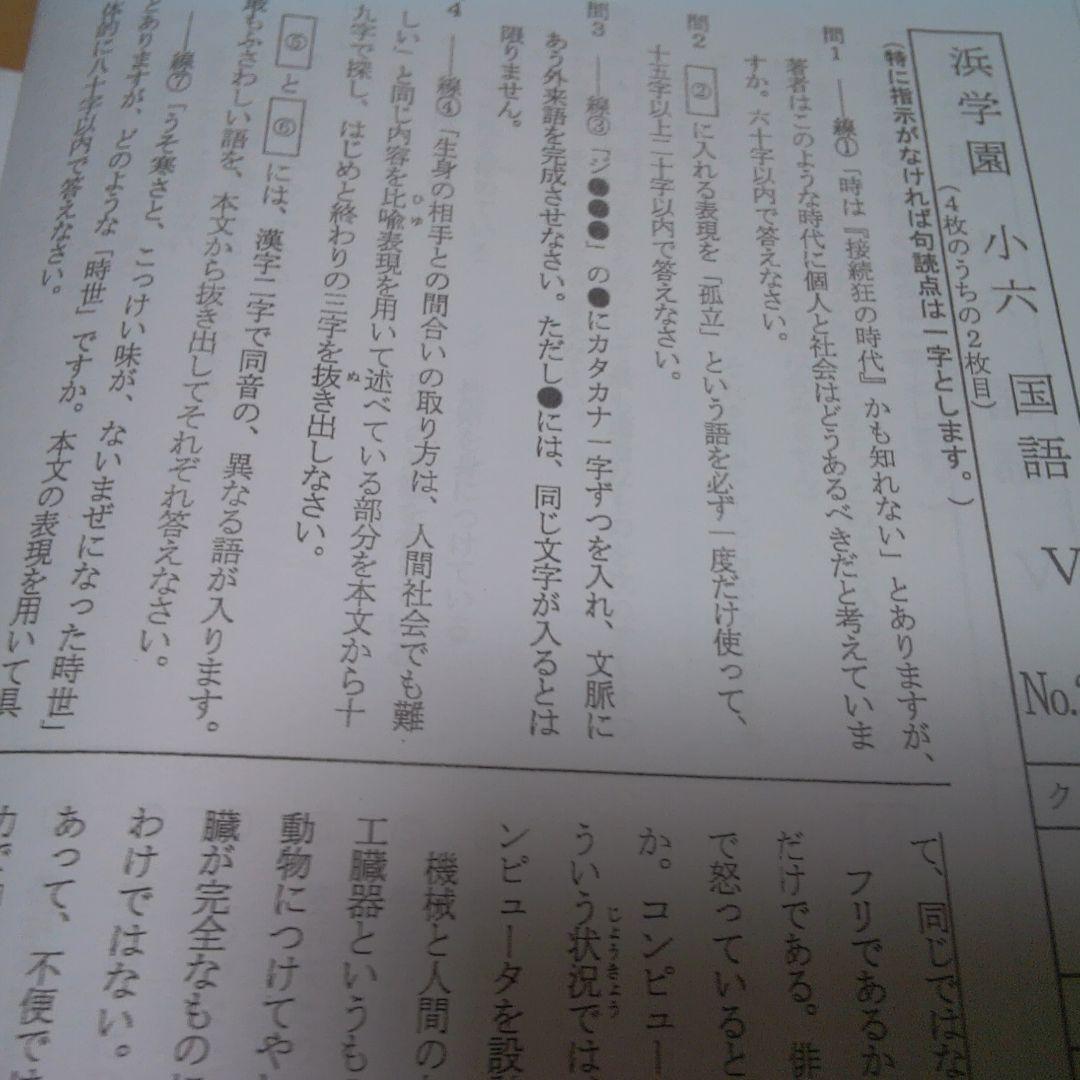 浜学園 小六 国語 V No.
(4枚のうちの2枚目)
(特に指示がなければ句読点は一字とします。)
問1 ――線①「時は『接続狂の時代』かも知れない」とありますが、
著者はこのような時代に個人と社会はどうあるべきだと考えていま
すか。六十字以内で答えなさい。
問2 ② に入れる表現を「孤立」という語を必ず一度だけ使って、
十五字以上二十字以内で答えなさい。
問3 ――線③「ジ●●●」の●にカタカナ一字ずつを入れ、文脈に
あう外来語を完成させなさい。ただし●には、同じ文字が入るとは
限りません。
4 ――線④「生身の相手との間合いの取り方は、人間社会でも難
しい」と同じ内容を比喩表現を用いて述べている部分を本文から十
九字で探し、はじめと終わりの三字を抜き出しなさい。
⑤ と ⑥ には、漢字二字で同音の、異なる語が入ります。
最もふさわしい語を、本文から抜き出してそれぞれ答えなさい。
――線⑦「うそ寒さと、こっけい味が、ないまぜになった時世」
とありますが、どのような「時世」ですか。本文の表現を用いて具
体的に八十字以内で答えなさい。
ク
て、同じではな
フリであるか
だけである。俳
で怒っていると
か。コンピュー
ういう状況では
ンピュータを設
機械と人間の
工臓器というも
動物につけてや
臓が完全なもの
わけではない。
あって、不便で